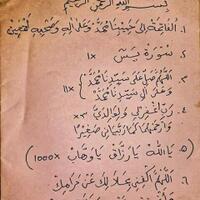 بسم الله الرحمن الرحيم
١. الفاتحة إلى حبيبنا محمد وعلى آله وصحبه أجمعين
٢. سورة يس ١x
٣. اللهم صل على سيدنا محمد
وعلى آل سيدنا محمد ١١x
٤. رب اغفر لي ولوالدي ٣x
وارحمهما كما ربياني صغيرا
٥. يا الله يا رزاق يا وهاب (1000x)
٦. اللهم اكفني بحلالك عن حرامك